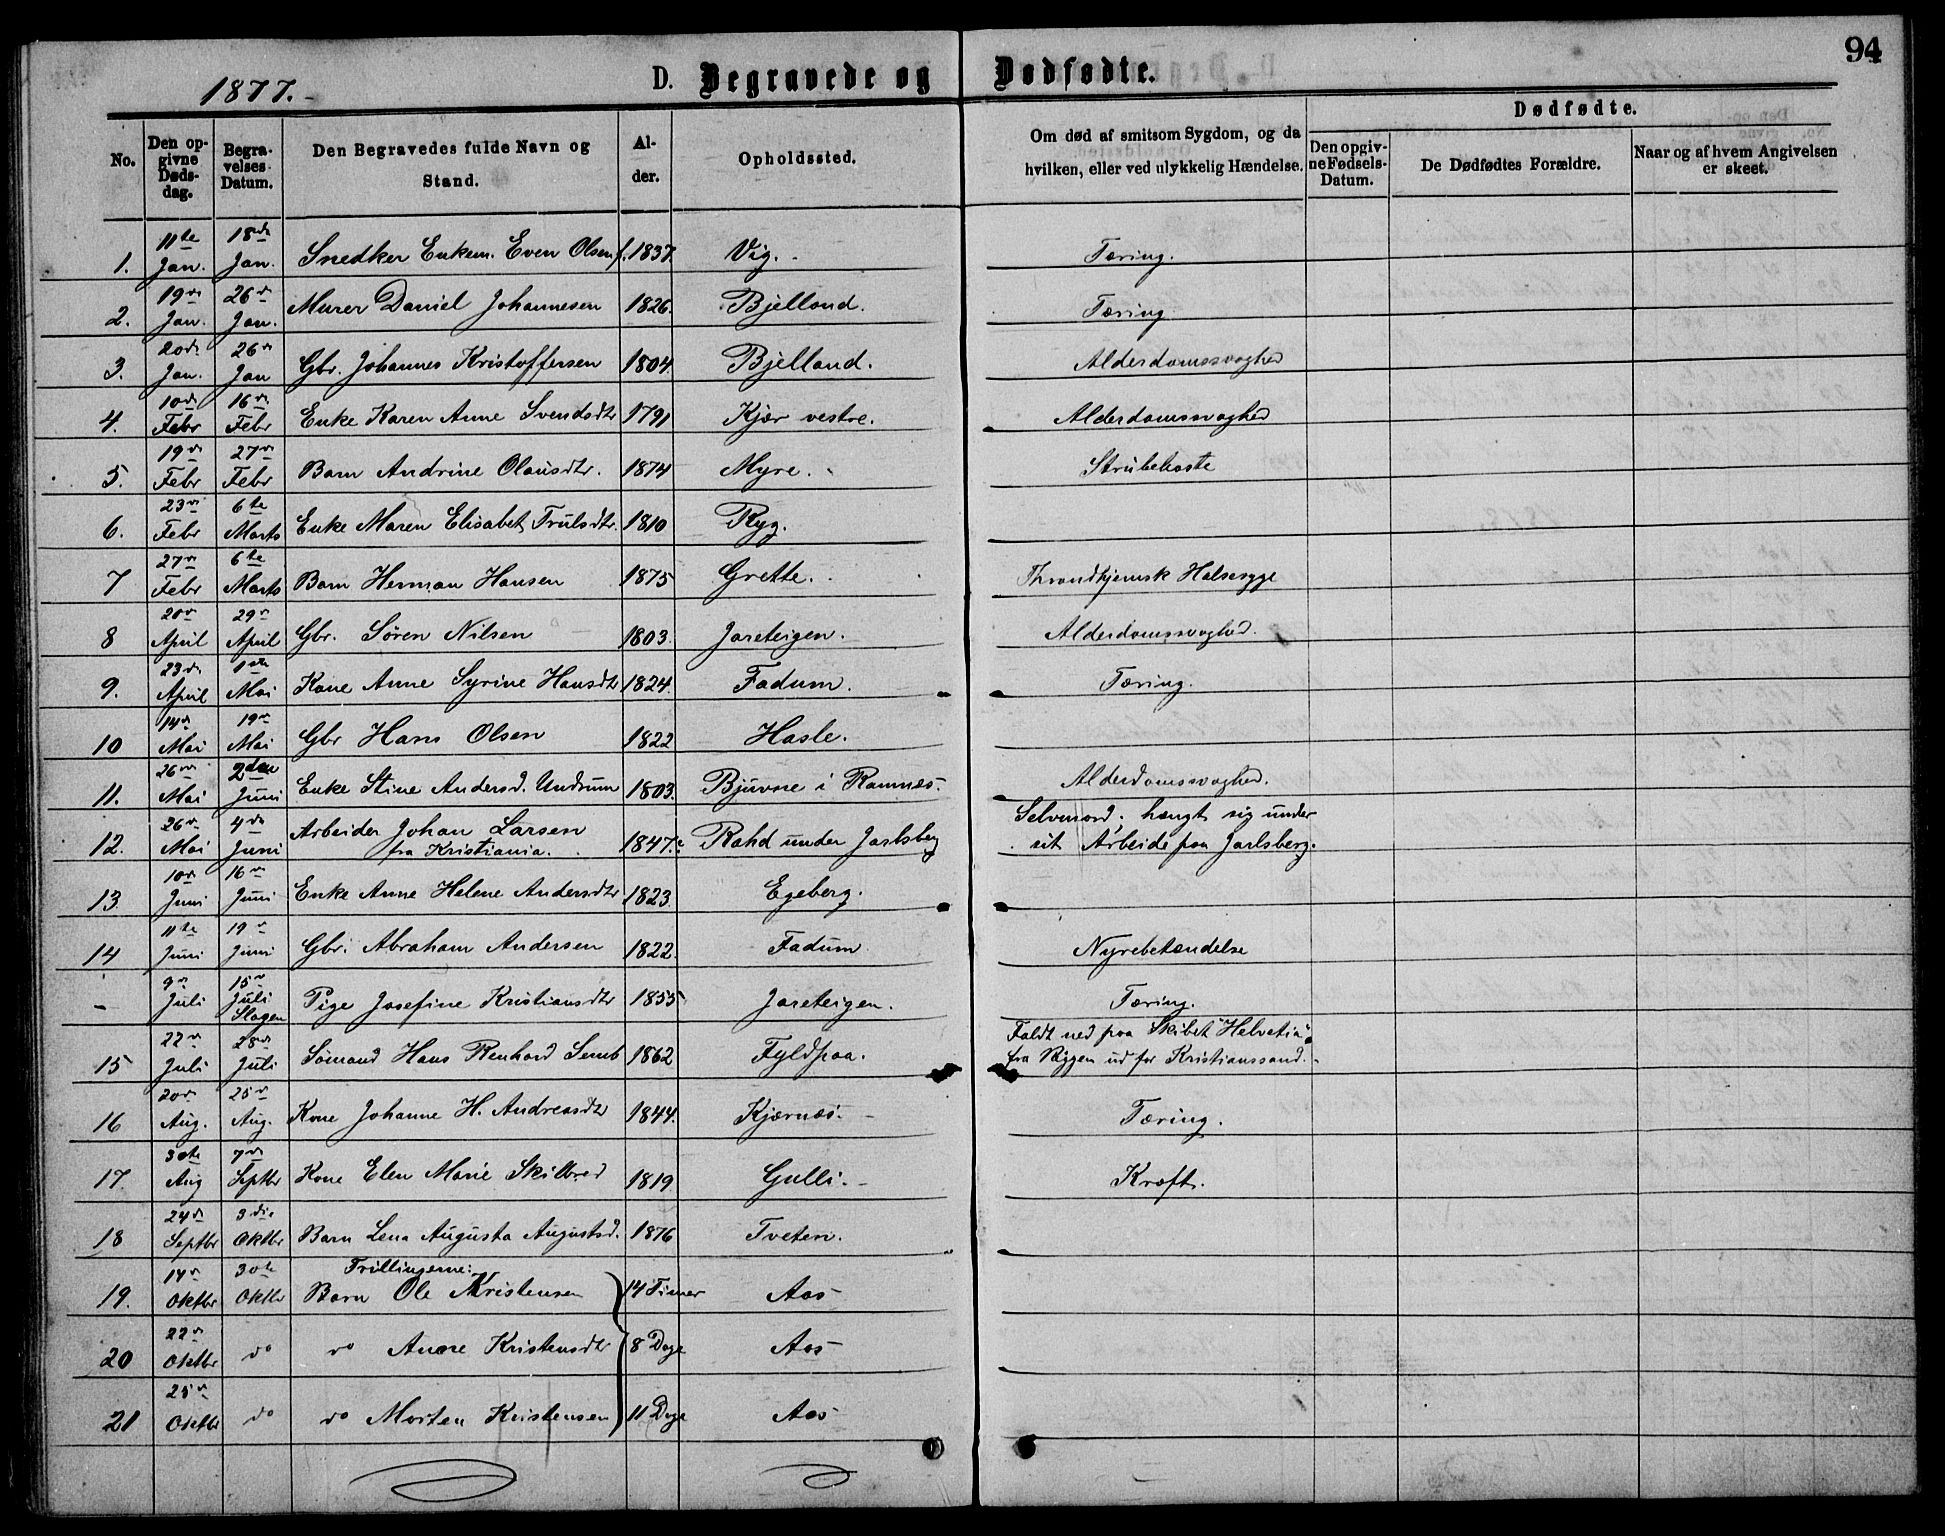 94
1877.-
D. Begravede og Dødfødte.
No.
Den opgivne Dødsdag.
Begravelses Datum.
Den Begravedes fulde Navn og Stand.
Alder.
Opholdssted.
Om død af smitsom Sygdom, og da hvilken, eller ved ulykkelig Hændelse.
Dødfødte.
Den opgivne Fødsels-Datum.
De Dødfødtes Forældre.
Naar og af hvem Angivelsen er skeet.
1. 11te Jan. 18de Jan. Snedker Enkem. Even Olsen f. 1837. Vig. Tæring.
2. 19de Jan. 26de Jan. Murer Daniel Johannesen 1826. Bjelland. Tæring
3. 20de Jan. 26de Jan Gbr. Johannes Kristoffersen 1804. Bjelland. Alderdomssvaghed
4. 10de Febr 16de Febr Enke Karen Anne Svendsdtr 1791 Kjær vestre. Alderdomssvaghed
5. 19de Febr 27de Febr Barn Andrine Olausdtr. 1874 Myre. Strubehoste
6. 23de Febr 6te Marts Enke Maren Elisabet Trulsdtr. 1810 Ryg.
7 27de Febr 6te Marts Barn Herman Hansen 1875 Grette. Throndhjemsk Halssyge
8 20de April 29de April Gbr. Sören Nilsen 1803. Jareteigen. Alderdomssvaghed.
9. 23de April 1ste Mai Kone Anne Syrine Hansdtr 1824. Fadum. Tæring.
10 14de Mai 19de Mai Gbr Hans Olsen 1822 Hasle.
11. 26de Mai 2den Juni Enke Stine Andersd. Undrum 1803. Bjuvne i Ramnæs. Alderdomssvaghed.
12. 26de Mai 4de Juni Arbeider Johan Larsen fra Kristiania. 1847. Rahd under Jarlsberg Selvmord; hængt sig under sit Arbeide paa Jarlsberg.
13. 10de Juni 16de Juni Enke Anne Helene Andersdtr 1823. Egeberg.
14 11te Juni 19de Juni Gbr. Abraham Andersen 1822. Fadum. Nyrebetændelse
- 9de Juli 15de Juli Slagen Pige Josefine Kristiansdtr 1855 Jareteigen. Tæring.
15 22de Juli 28de Juli Sømand Hans Renhard Semb 1862 Fyldpaa. Faldt ned paa Skibet "Helvetia" fra Riggen ud for Kristianssand.
16 20de Aug. 25de Aug. Kone Johanne H. Andreasdtr 1844. Kjærnæs. Tæring.
17. 30te Aug 7de Septbr Kone Elen Marie Skilbred 1819. Gulli. Kræft.
18 24de Septbr 3die Oktbr Barn Lena Augusta Augustsd. 1876 Tveten.
Trillingerne:
19. 14de Oktbr 30te Oktbr Barn Ole Kristensen 14 Timer Aas
20 22de Oktbr do do Anne Kristensdtr 8 Dage Aas
21 25de Oktbr do do Morten Kristensen 11 Dage Aas